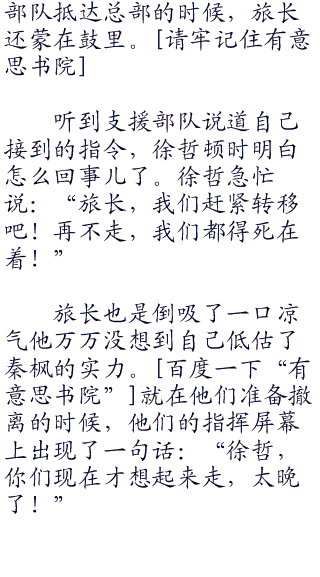 部队抵达总部的时候，旅长
还蒙在鼓里。[请牢记住有意
思书院]
听到支援部队说道自己
接到的指令，徐哲顿时明白
怎么回事儿了。徐哲急忙
说：“旅长，我们赶紧转移
吧！再不走，我们都得死在
着！”
旅长也是倒吸了一口凉
气他万万没想到自己低估了
秦枫的实力。[百度一下“有
意思书院”]就在他们准备撤
离的时候，他们的指挥屏幕
上出现了一句话：“徐哲，
你们现在才想起来走，太晚
了！”